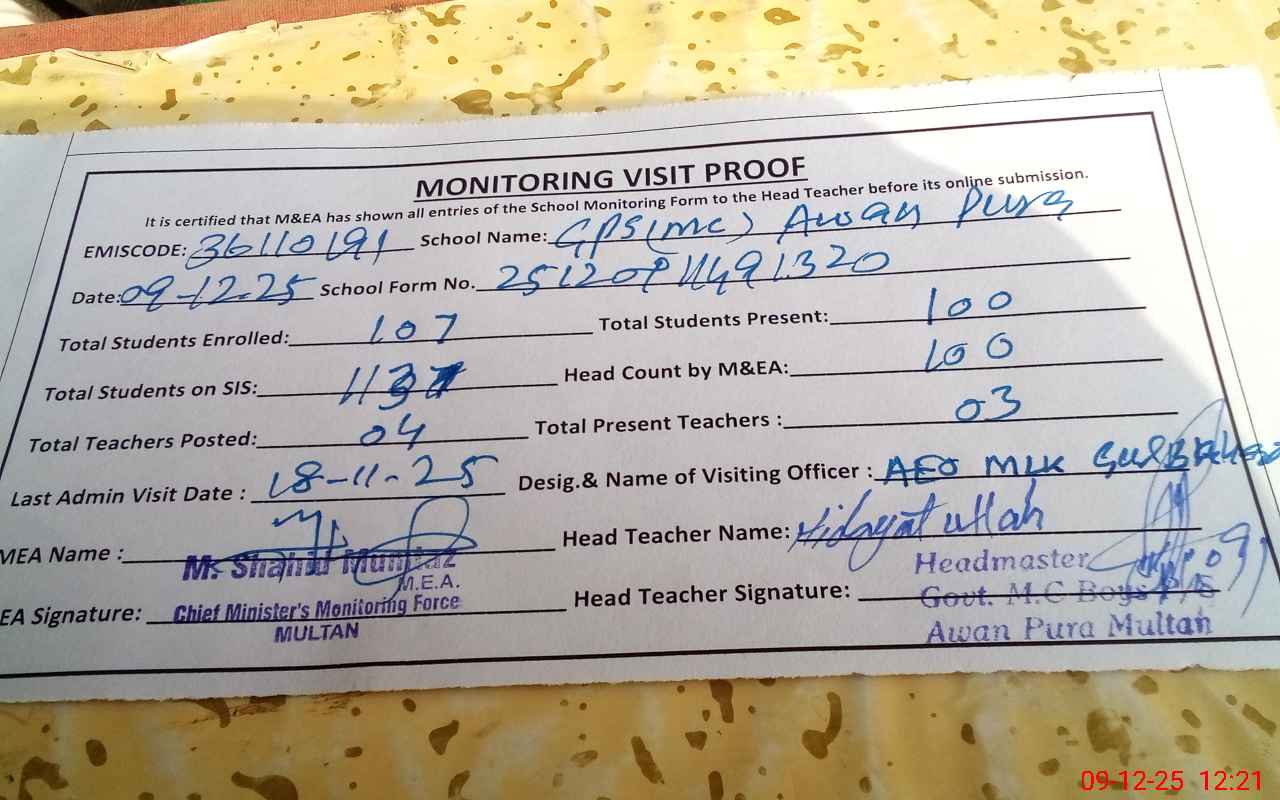 MONITORING VISIT PROOF
It is certified that M&EA has shown all entries of the School Monitoring Form to the Head Teacher before its online submission.
EMISCODE: 36110191 School Name: GPS (MC) Awan Pura
Date: 09-12-25 School Form No. 251209
Total Students Enrolled: 107 Total Students Present: 100
Total Students on SIS: Head Count by M&EA: 100
Total Teachers Posted: 04 Total Present Teachers : 03
Last Admin Visit Date : 18-11-25 Desig.& Name of Visiting Officer : AEO MLK
MEA Name : Head Teacher Name: Hidayat ullah
M. Shahid Mumtaz Headmaster
M.E.A.
EA Signature: Chief Minister's Monitoring Force Head Teacher Signature: Govt. M.C Boys P/S
MULTAN Awan Pura Multan
09-12-25 12:21